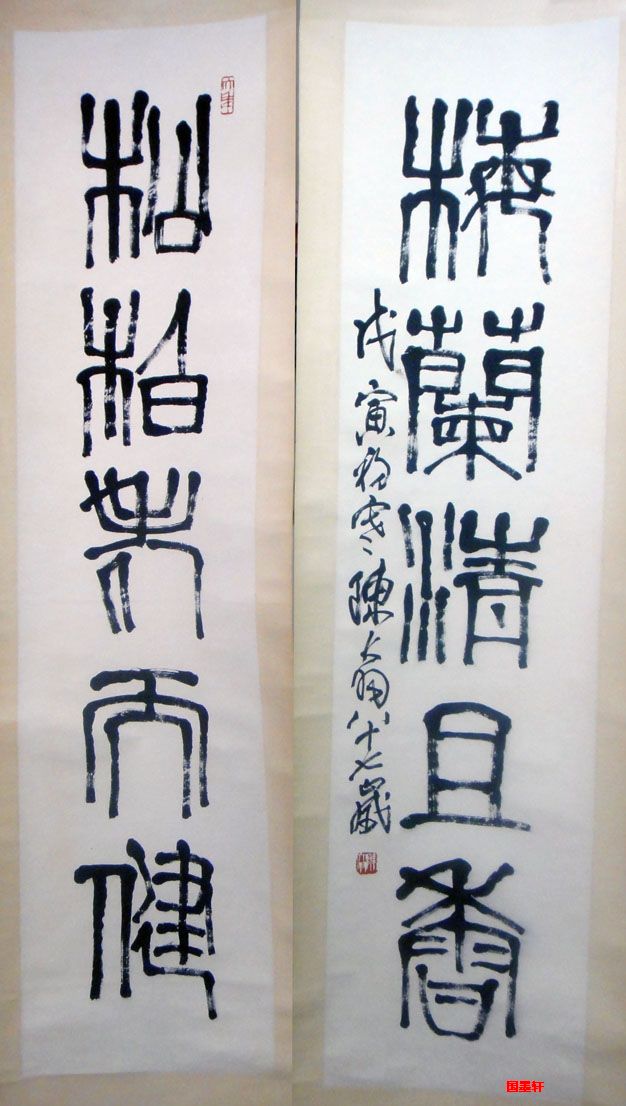 松柏老而健
梅蘭清且香
戊寅寒陳大羽八十七歲
国墨轩